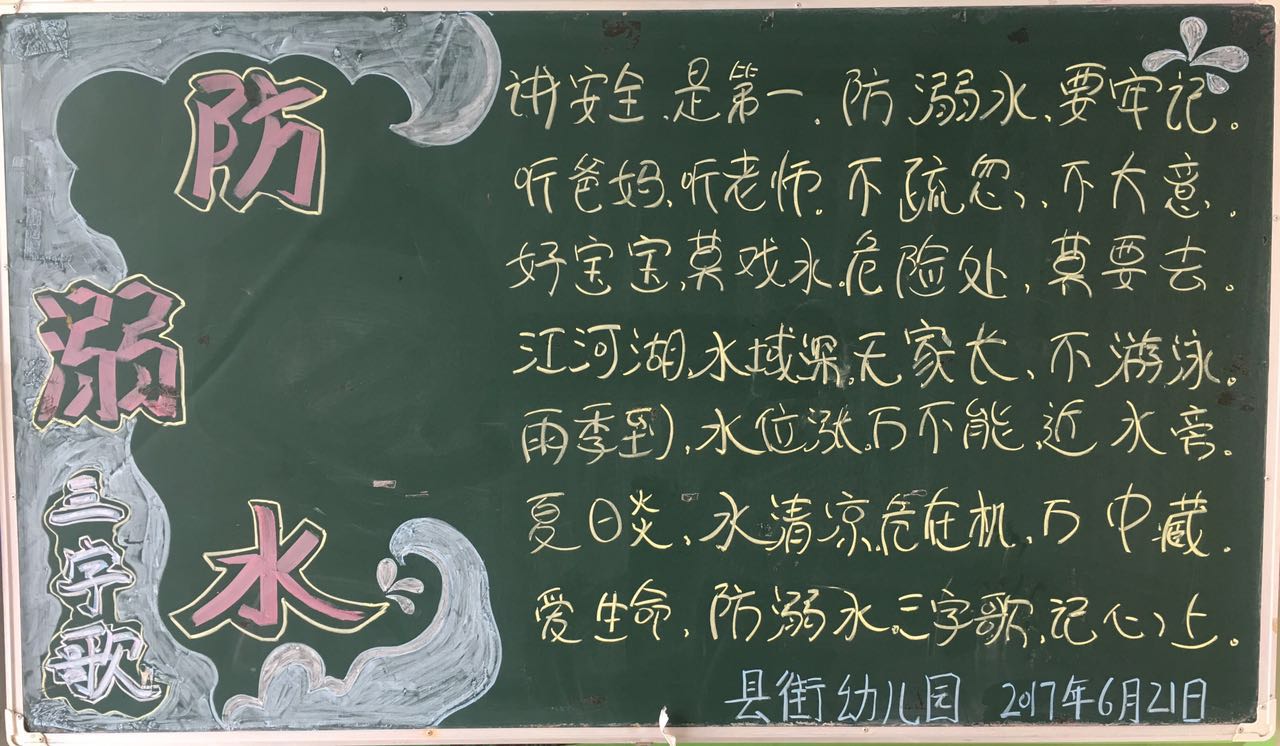 防溺水
三字歌
讲安全、是第一、防溺水、要牢记。
听爸妈、听老师、不疏忽、不大意。
好宝宝、莫戏水、危险处、莫要去。
江河湖、水域深、无家长、不游泳。
雨季到、水位涨、万不能、近水旁。
夏日炎、水清凉、危在机、万中藏。
爱生命、防溺水、三字歌、记心上。
县街幼儿园 2017年6月21日